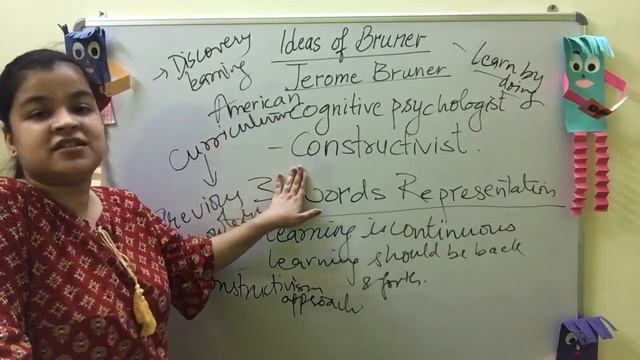 Ideas of Bruner
→ Discovery
learning
Learn by
doing
Jerome Bruner
American
Cognitive psychologist
Curriculum
- Constructivist.
Previous
3 words Representation
learning is continuous
learning should be back
& forth.
constructivism
approach